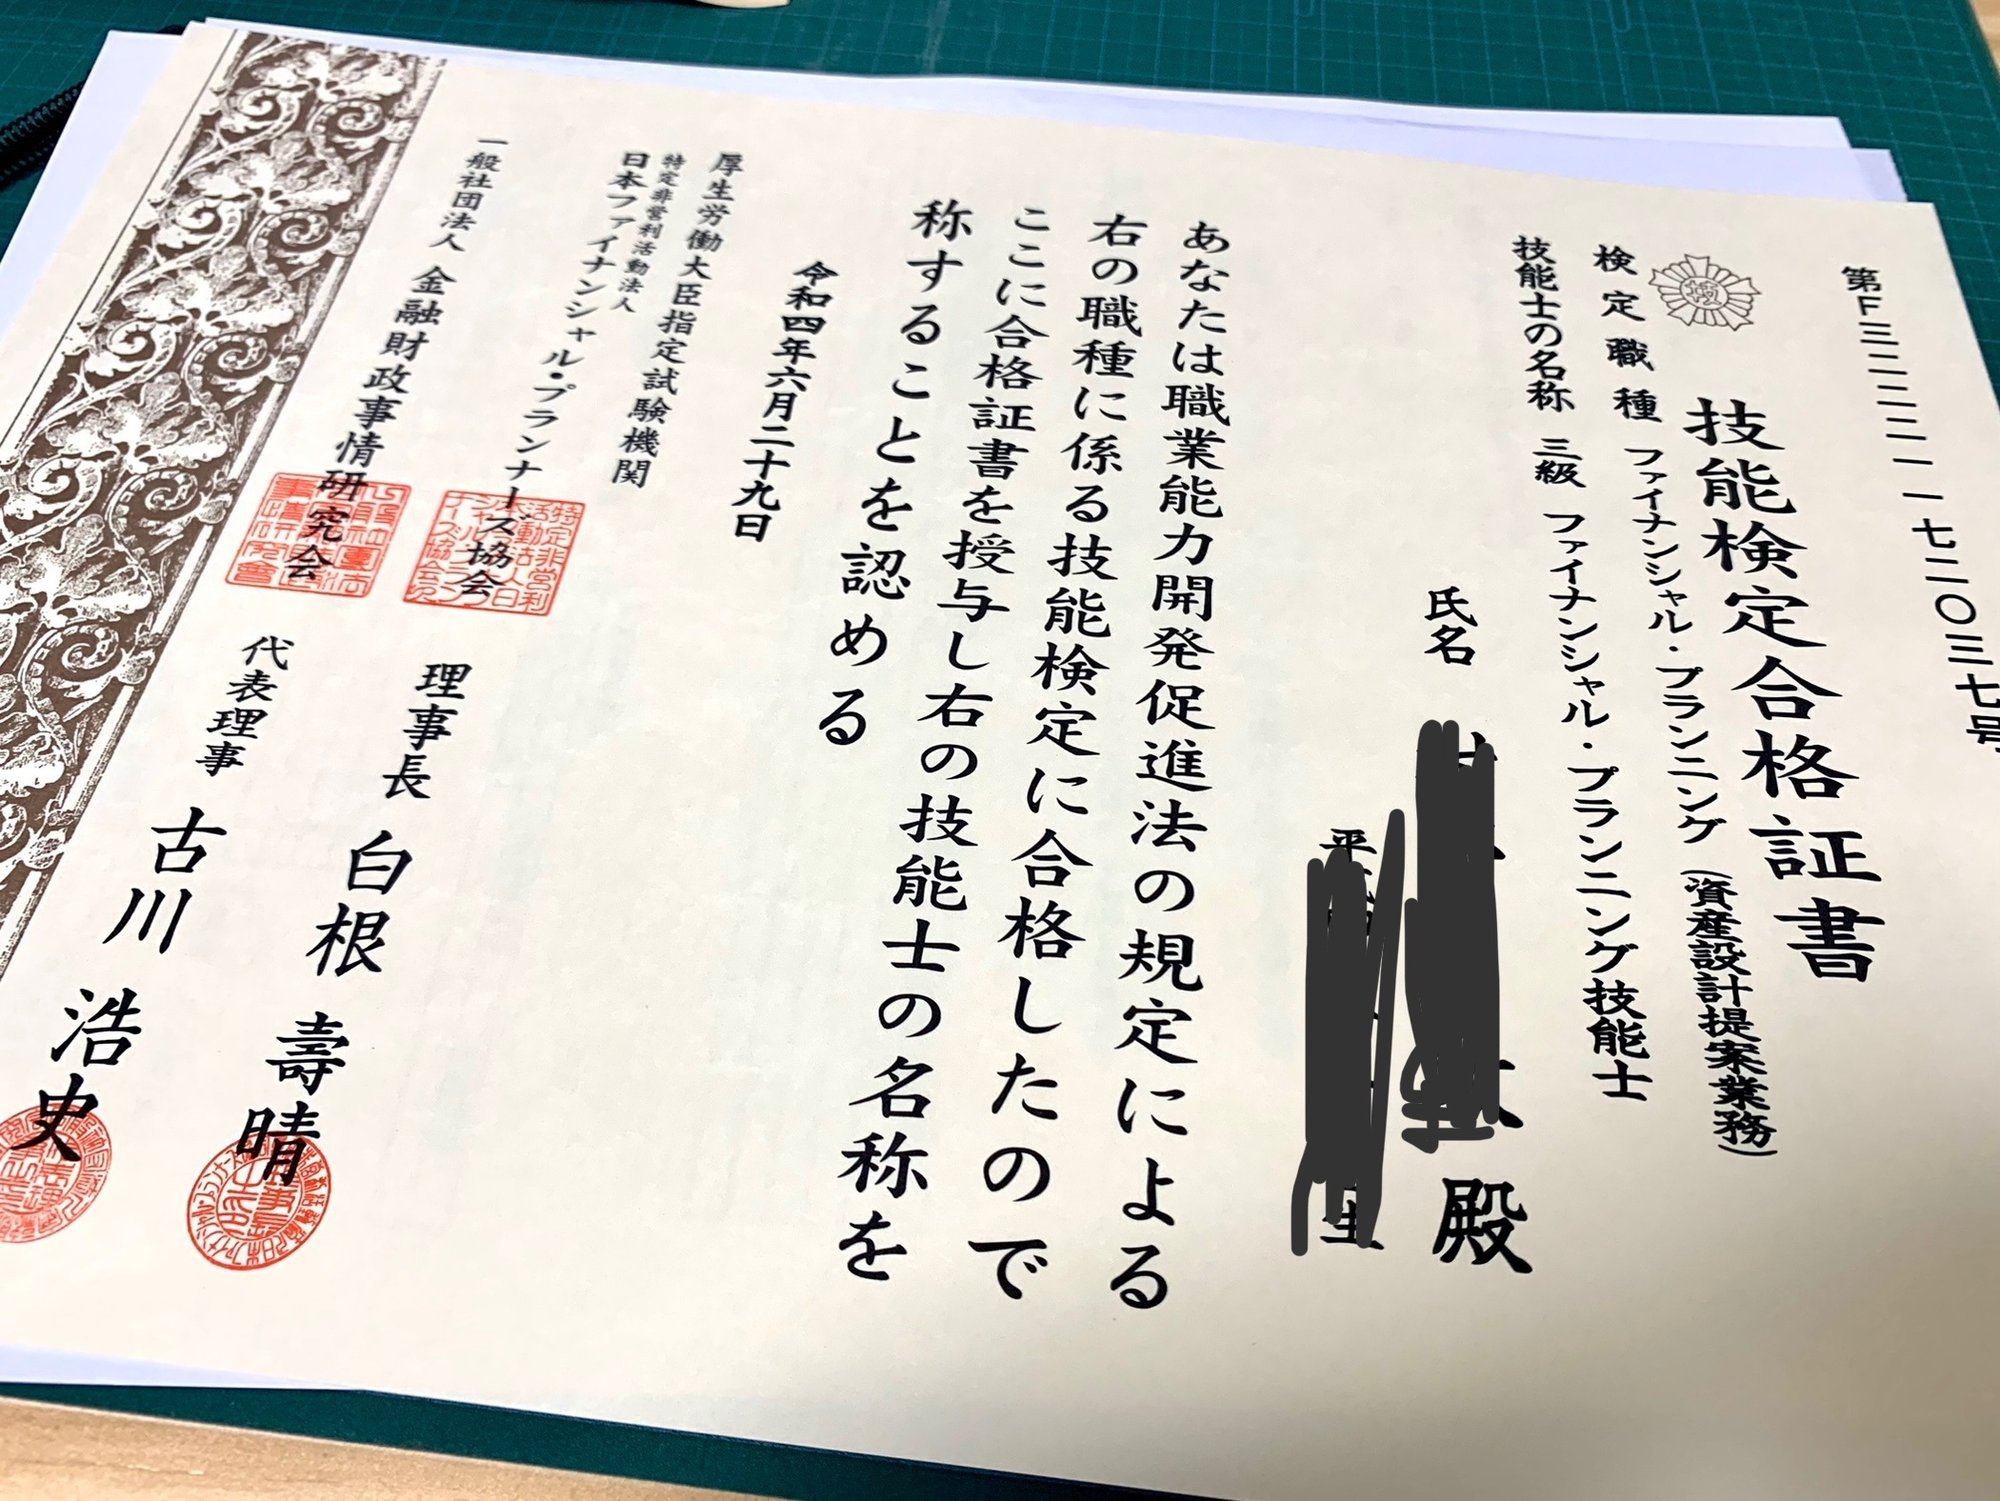 第F三二二三一一七二〇三七号
技能検定合格証書
技
検定職種 ファイナンシャル・プランニング(資産設計提案業務)
技能士の名称 三級 ファイナンシャル・プランニング技能士
氏名 殿
平 生
あなたは職業能力開発促進法の規定による
右の職種に係る技能検定に合格したので
ここに合格証書を授与し右の技能士の名称を
称することを認める
令和四年六月二十九日
厚生労働大臣指定試験機関
特定非営利活動法人
日本ファイナンシャル・プランナーズ協会 理事長 白根 壽晴
一般社団法人 金融財政事情研究会 代表理事 古川 浩史